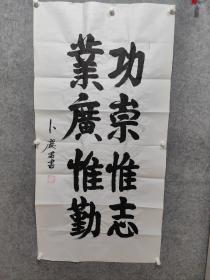 功崇惟志
業廣惟勤
卜慶書